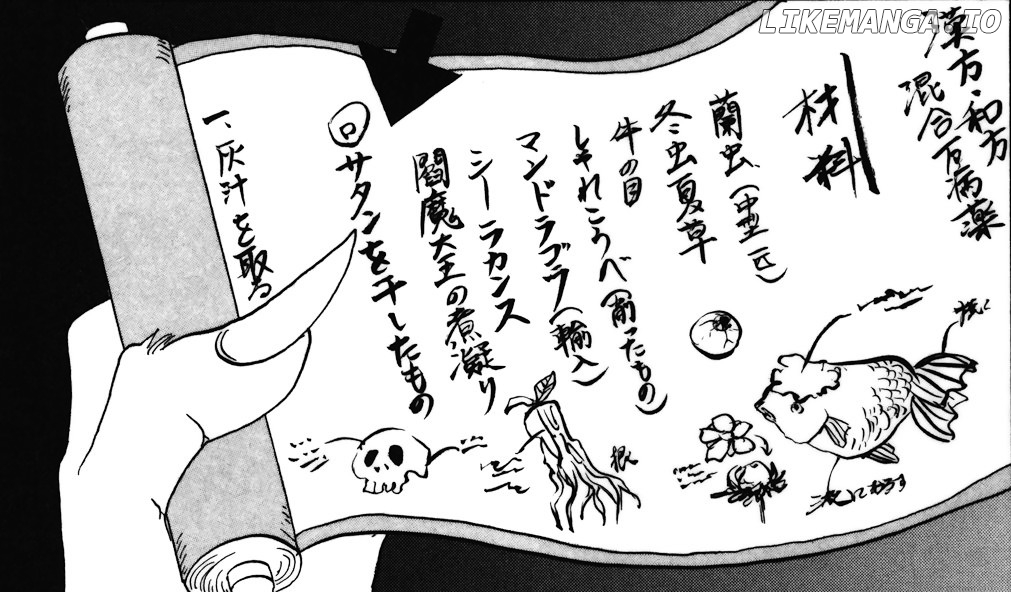 LIKEMANGA.IO
漢方・和方
混合百病薬
材料
蘭虫(中型一匹)
冬虫夏草
牛の目
しゃれこうべ(削ったもの)
マンドラゴラ(輸入)
シーラカンス
閻魔大王の煮凝り
回サタンを干したもの
一、灰汁を取る
根